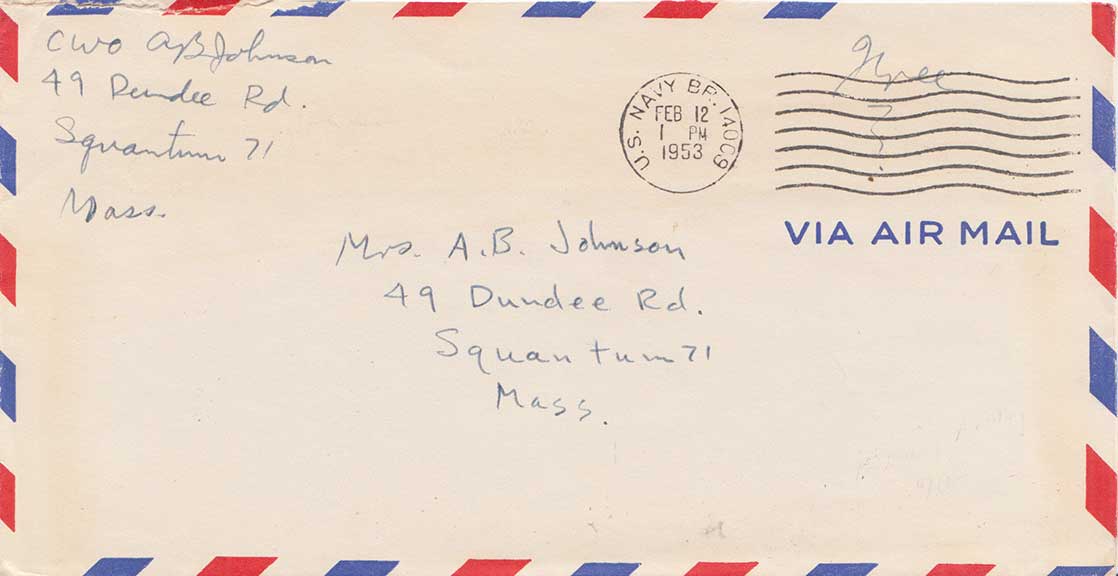 CWO A B Johnson
49 Dundee Rd.
Squantum 71
Mass.
U.S. NAVY BR. 14009
FEB 12
1 PM
1953
Free
VIA AIR MAIL
Mrs. A.B. Johnson
49 Dundee Rd.
Squantum 71
Mass.